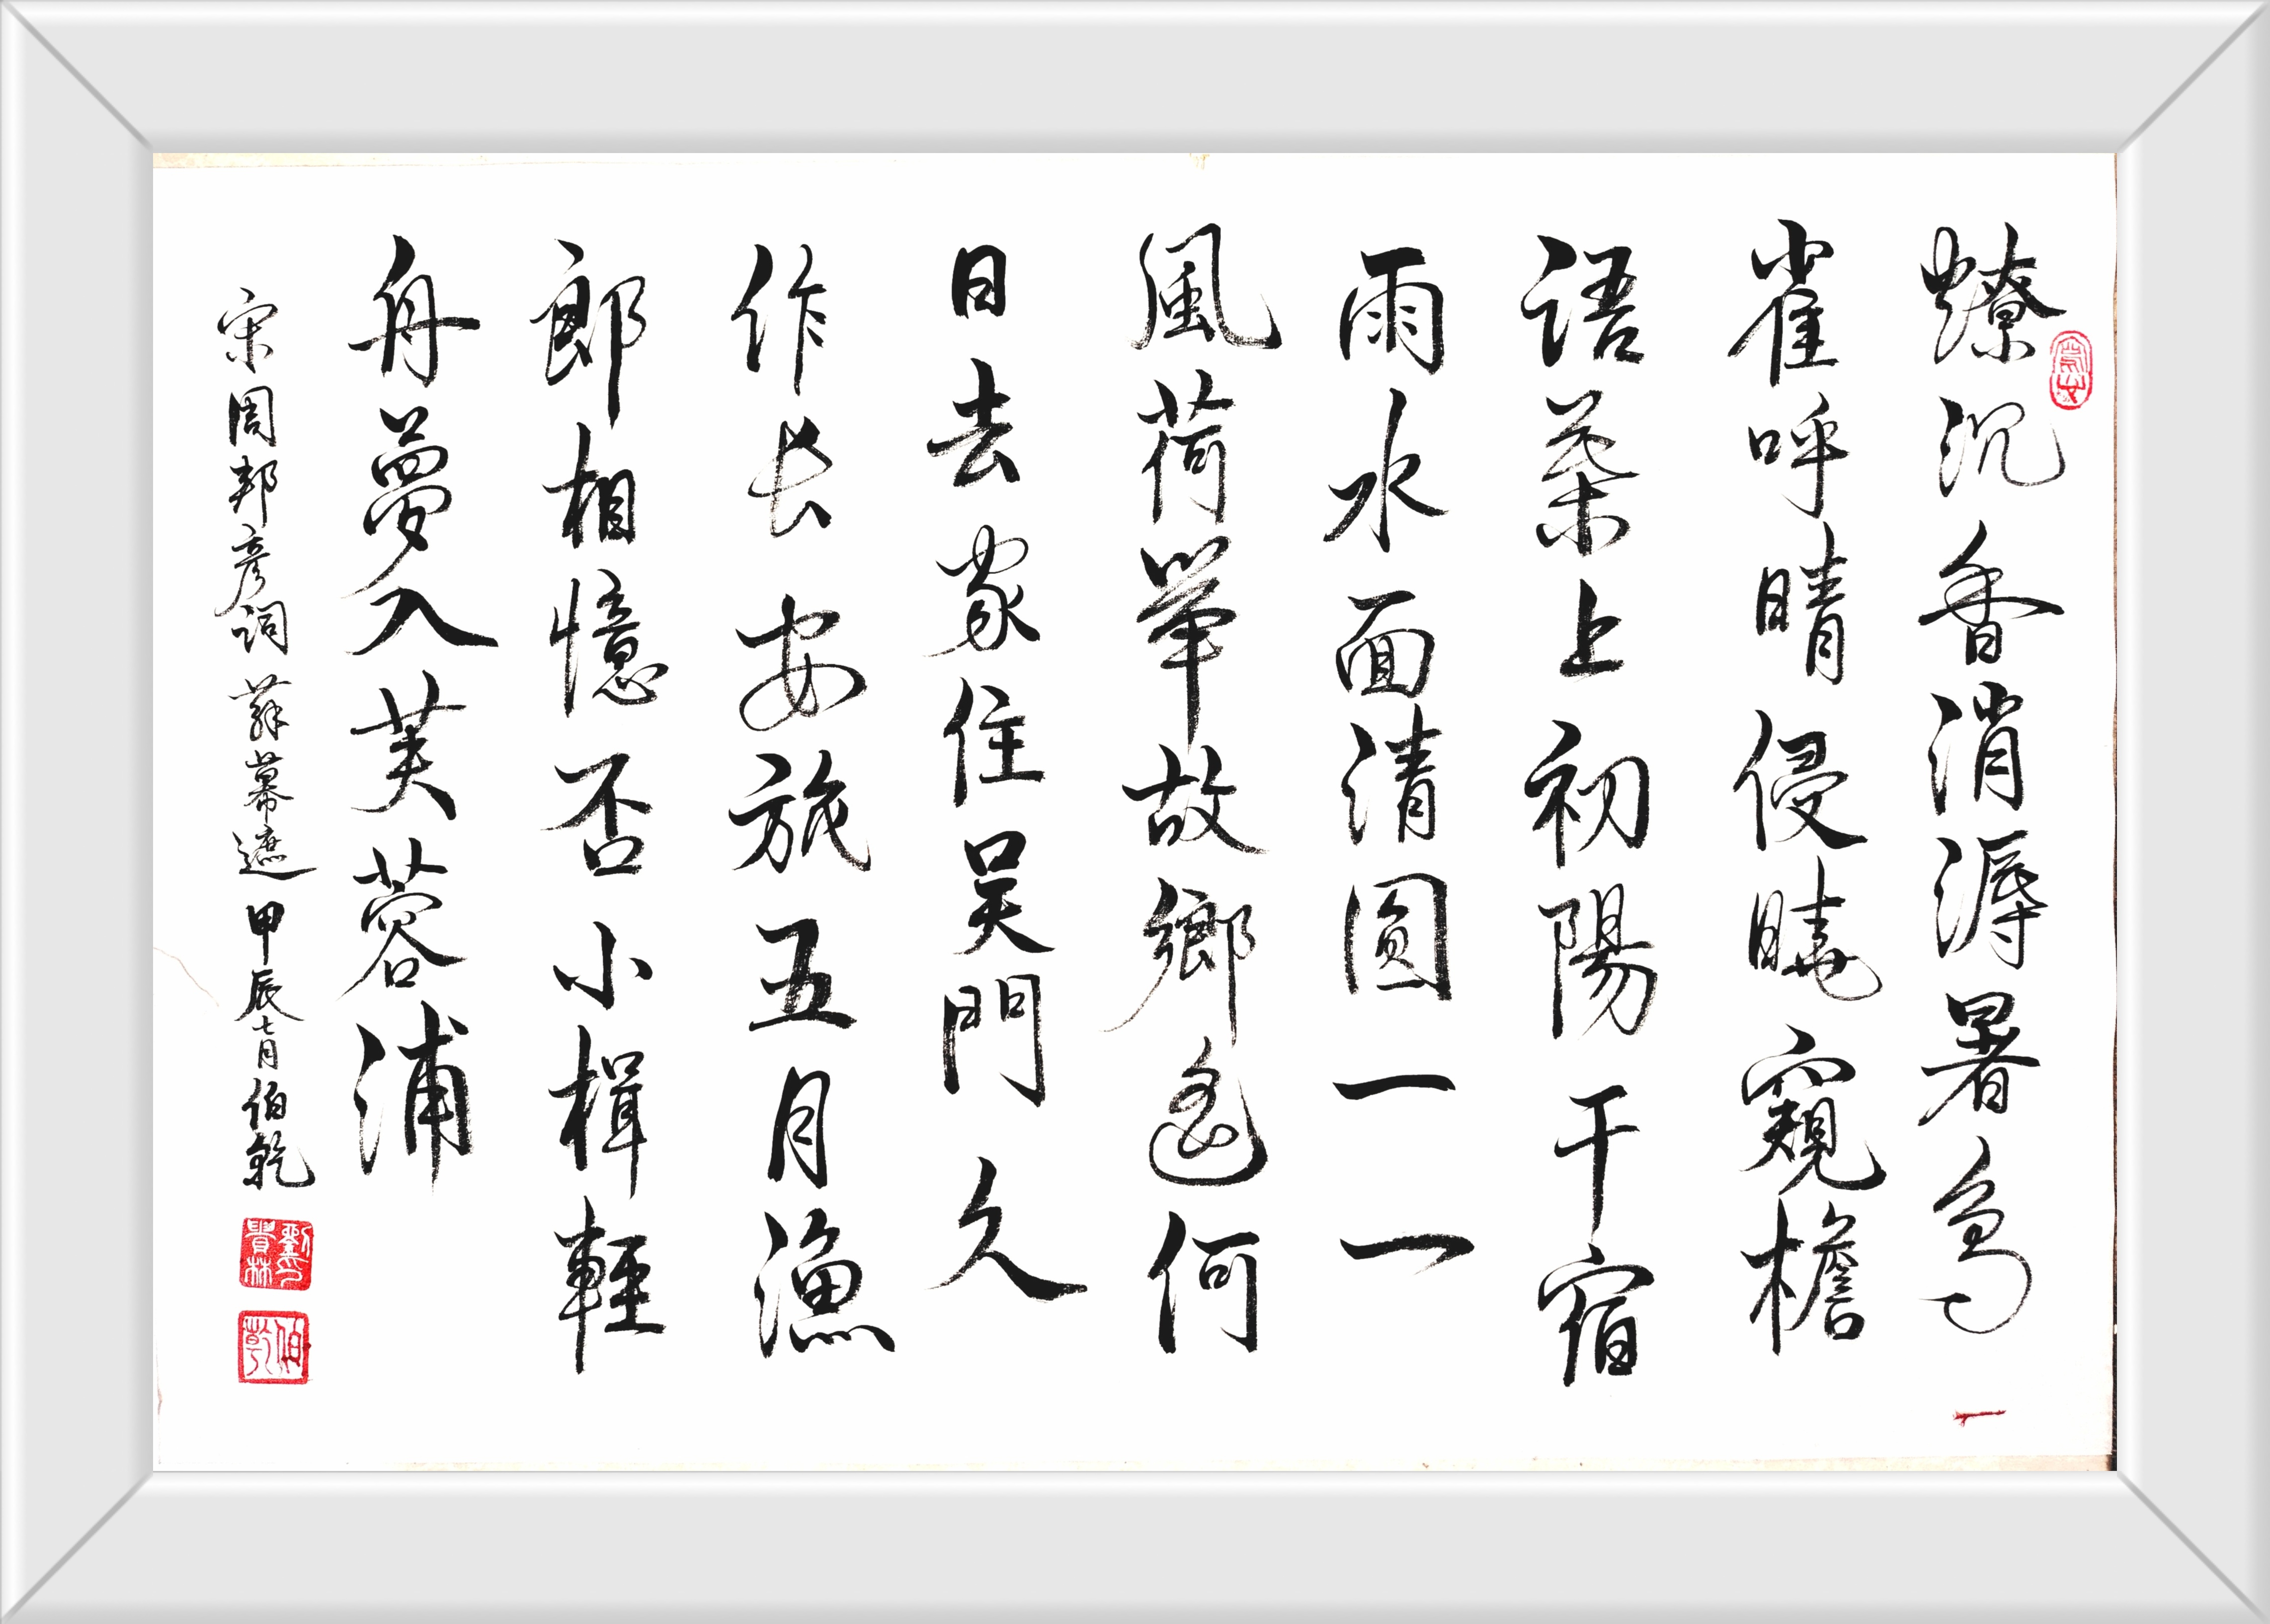 燎沉香消溽暑鳥
雀呼晴侵曉窺檐
语葉上初陽干宿
雨水面清圓一一
風荷舉故鄉遙何
日去家住吴門久
作长安旅五月漁
郎相憶否小楫輕
舟夢入芙蓉浦
宋周邦彥詞蘇幕遮甲辰七月伯乾
伯乾